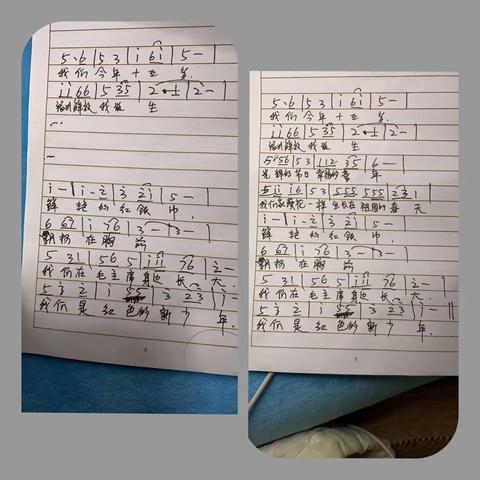 5·6|5 3|i 6i|5-|
我们今年十五岁
ii66|5 35|2·1|2-|
解放我诞生
i-|i-2|3 2i|5-|
鲜艳的红领巾,
6 67|i 76|3-|3-|
飘扬在胸前
5 31|56 5|iii 76|2-|
我们在毛主席身边长大.
5 3 2|i 55|3 23|i-||
我们是红色的新少年.
5·6|5 3|i 6i|5-|
我们今年十五岁
ii66|5 35|2·1|2-|
解放我诞生
5 56|53|112 35|6-|
光辉的节日幸福的童年
5ii i6|53|555 555|231|
我们象葵花一样生长在祖国的春天
i-|i-2|3 2i|5-|
鲜艳的红领巾,
6 67|i 76|3-|3-|
飘扬在胸前
5 31|56 5|iii 76|2-|
我们在毛主席身边长大.
5 3 2|i 55|3 23|i-||
我们是红色的新少年.